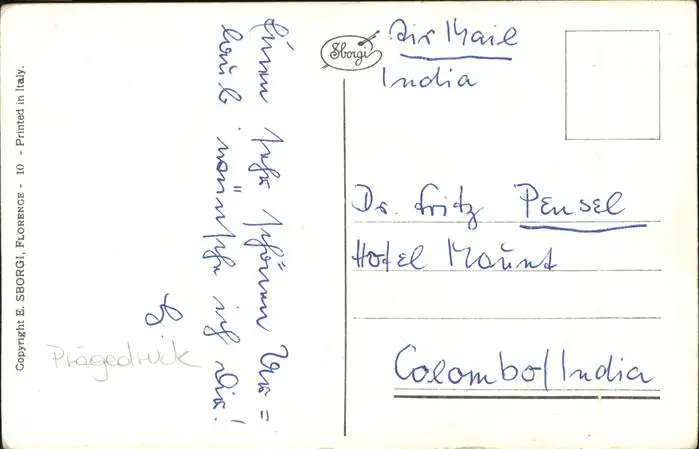 Copyright E. SBORGI, FLORENCE - 10 - Printed in Italy.
Einen sehr schönen Ur=
laub wünsche ich Dir!
L
Prägedruck
Sborgi
Air Mail
India
Dr. Fritz Pensel
Hotel Mount
Colombo/India